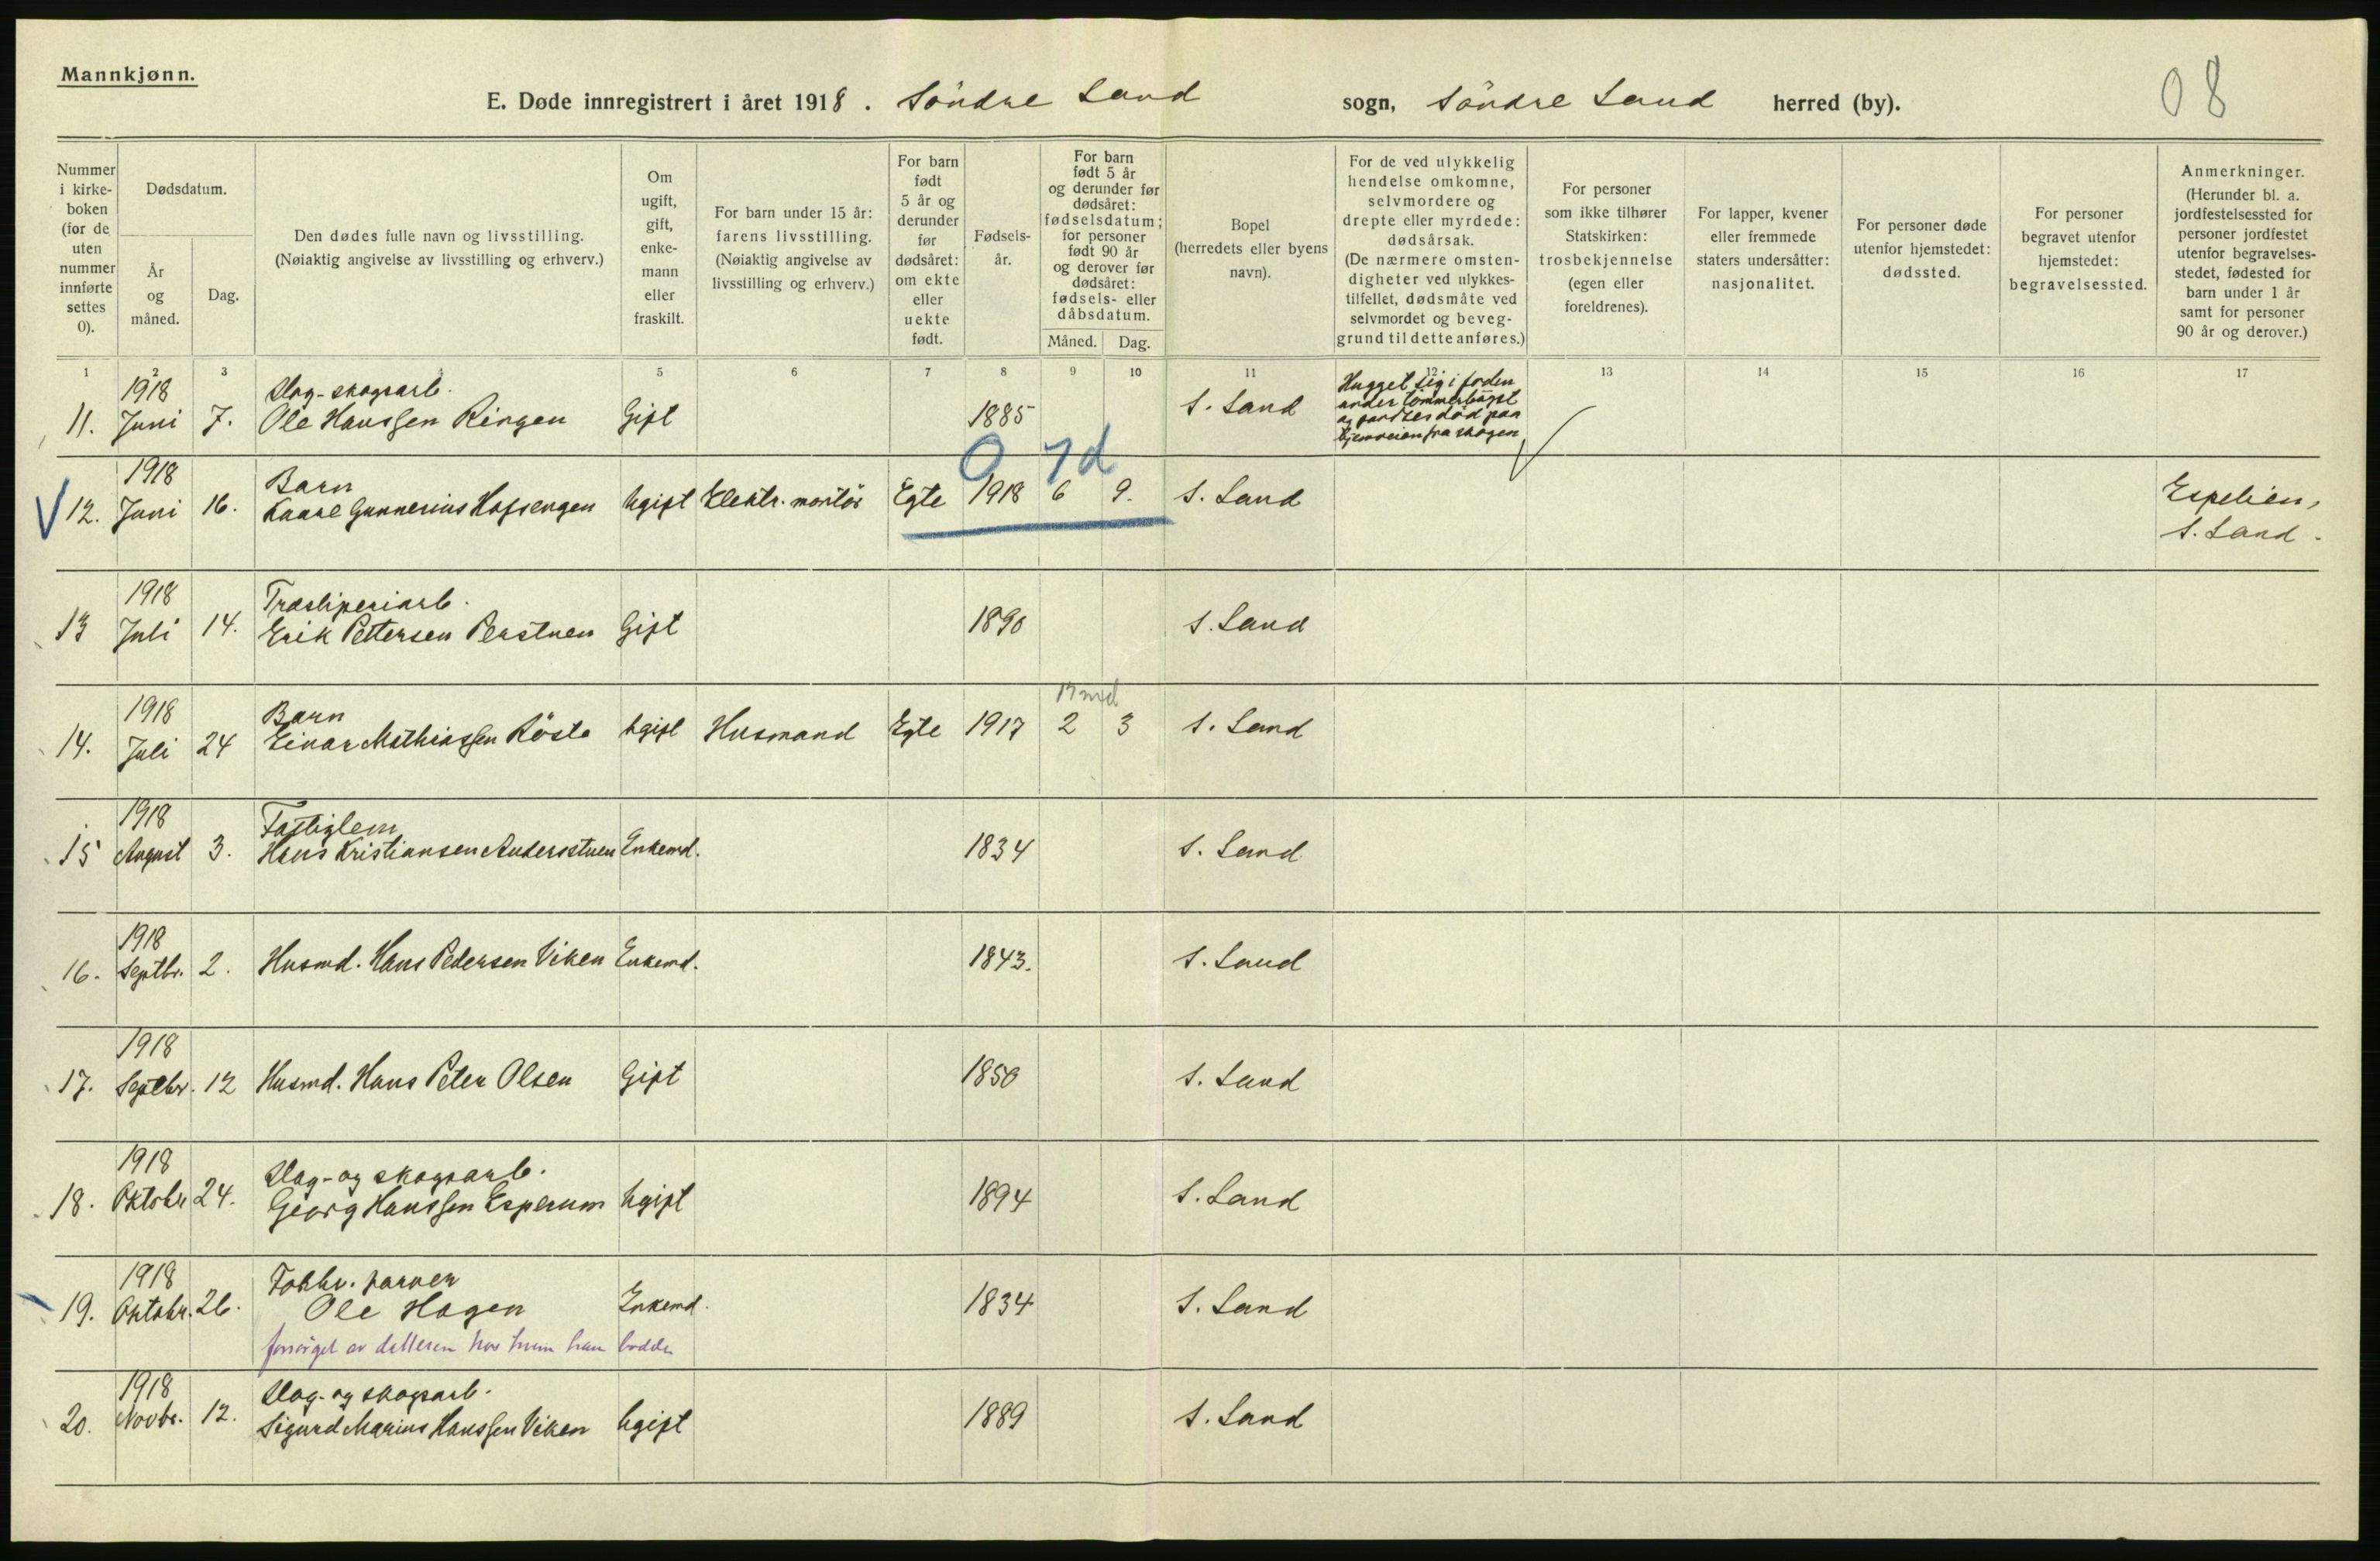 Mannkjønn.
08
E. Døde innregistrert i året 1918. Söndre Land sogn, Söndre Land herred (by).
Nummer i kirke-boken (for de uten nummer innførte settes 0).
Dødsdatum.
År og måned.
Dag.
Den dødes fulle navn og livsstilling. (Nøiaktig angivelse av livsstilling og erhverv.)
Om ugift, gift, enke-mann eller fraskilt.
For barn under 15 år: farens livsstilling. (Nøiaktig angivelse av livsstilling og erhverv.)
For barn født 5 år og derunder før dødsåret: om ekte eller uekte født.
Fødsels-år.
For barn født 5 år og derunder før dødsåret: fødselsdatum; for personer født 90 år og derover før dødsåret: fødsels- eller dåbsdatum.
Måned.
Dag.
Bopel (herredets eller byens navn).
For de ved ulykkelig hendelse omkomne, selvmordere og drepte eller myrdede: dødsårsak. (De nærmere omsten-digheter ved ulykkes-tilfellet, dødsmåte ved selvmordet og beveg-grund til dette anføres.)
For personer som ikke tilhører Statskirken: trosbekjennelse (egen eller foreldrenes).
For lapper, kvener eller fremmede staters undersåtter: nasjonalitet.
For personer døde utenfor hjemstedet: dødssted.
For personer begravet utenfor hjemstedet: begravelsessted.
Anmerkninger. (Herunder bl. a. jordfestelsessted for personer jordfestet utenfor begravelses-stedet, fødested for barn under 1 år samt for personer 90 år og derover.)
1 2 3 4 5 6 7 8 9 10 11 12 13 14 15 16 17
1918 Dag-skogsarb. Hugget sig i foden
11. Juni 7. Ole Hanssen Ringen Gift 1885 S. Land under tömmerhugst
og fandtes död paa
hjemveien fra skogen
0 7d
1918 Barn
12. Juni 16. Kaare Gunnerius Hofsengen Ugift Elektr. montör Egte 1918 6 9. S. Land Espelien,
S. Land.
1918 Træsliperiarb.
13 Juli 14. Erik Pettersen Perstuen Gift 1890 S. Land
17 md
1918 Barn
14. Juli 24 Einar Mathiassen Röste Ugift Husmand Egte 1917 2 3 S. Land
1918 Fattiglem
15 August 3. Hans Kristiansen Andersstuen Enkemd. 1834 S. Land
1918
16. Septbr. 2. Husmd. Hans Pedersen Viken Enkemd. 1843. S. Land
1918
17. Septbr. 12 Husmd. Hans Peter Olsen Gift 1850 S. Land
1918 Dag- og skogsarb.
18. Oktobr 24. Georg Hanssen Esperum Ugift 1894 S. Land
1918 Forhv. farver
19. Oktobr. 26. Ole Hagen Enkemd. 1834 S. Land
forsörget av datteren hos hvem han bodde
1918 Dag- og skogsarb.
20. Novbr. 12. Sigurd Marius Hanssen Viken Ugift 1889 S. Land